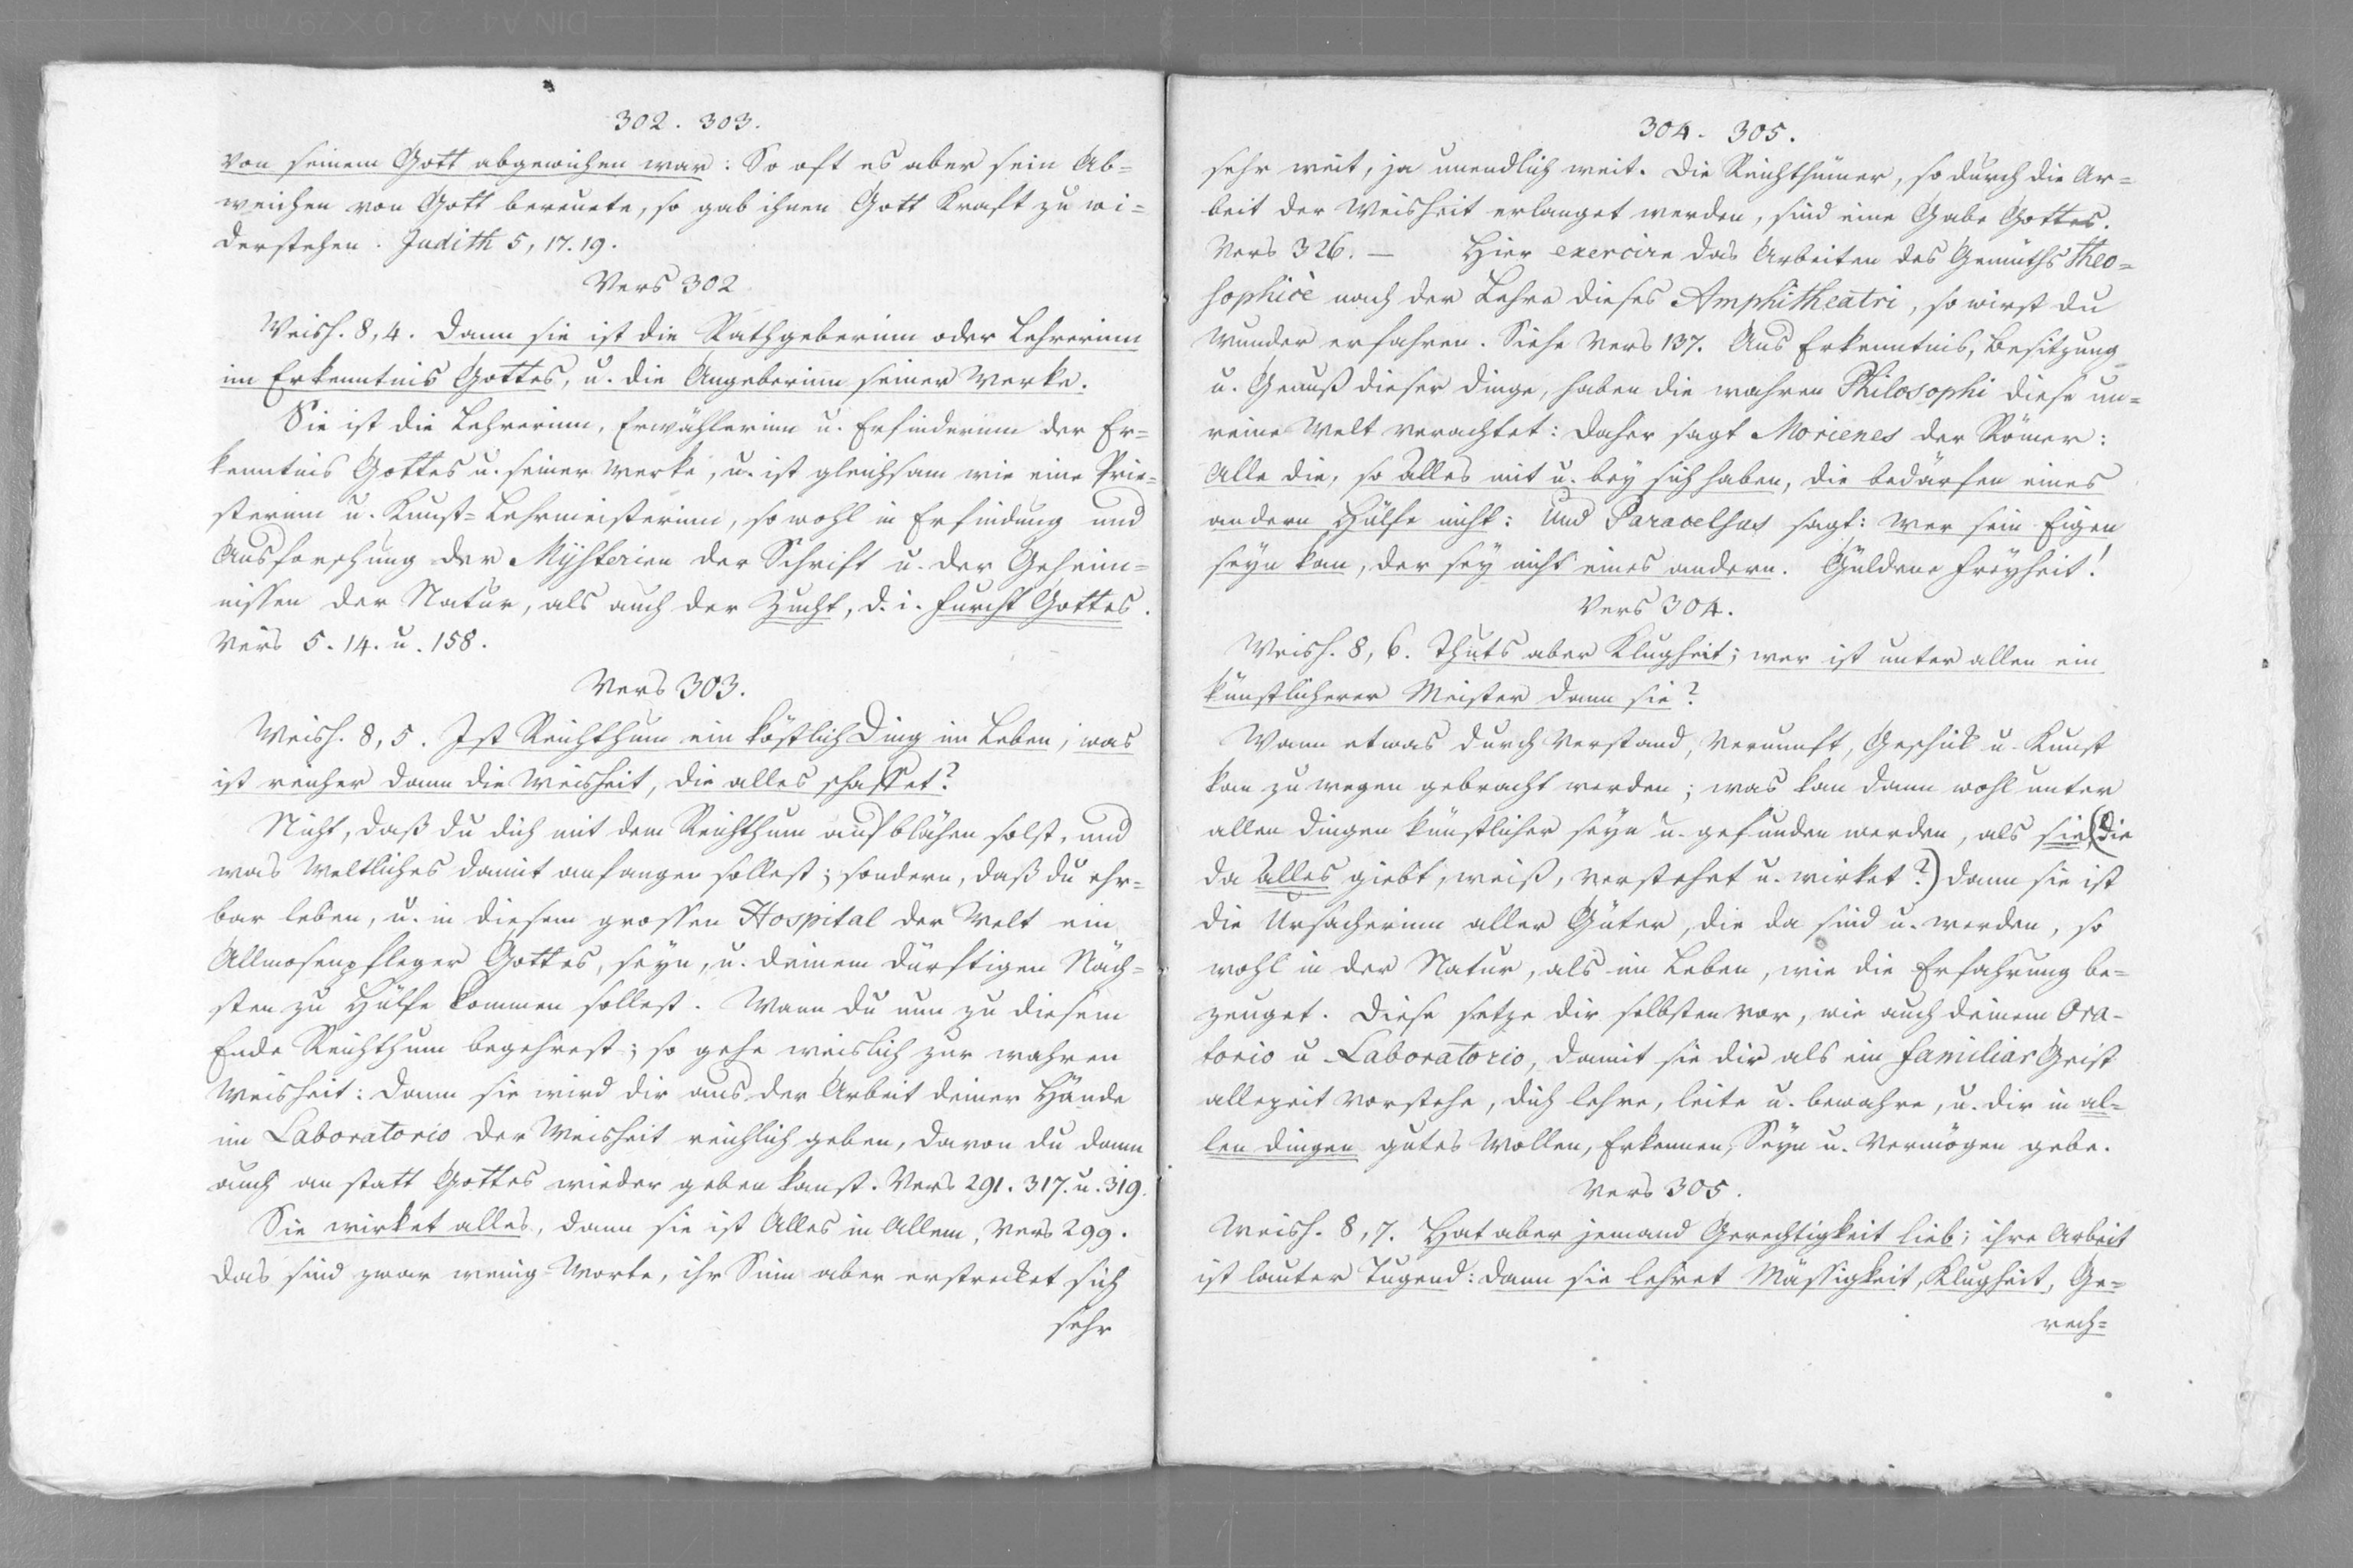 302. 303.
von seinem Gott abgewichen war: So oft es aber sein Ab-
weichen von Gott bereuete, so gab ihnen Gott Kraft zu wi-
derstehen. Judith 5, 17. 19.
Vers 302
Weish. 8, 4. Dann sie ist die Rathgeberinn oder Lehrerinn
im Erkenntnis Gottes, u. die Angeberinn seiner Werke.
Sie ist die Lehrerinn, Erwählerinn u. Erfinderinn der Er-
kenntnis Gottes u. seiner Werke, u. ist gleichsam wie eine Prie-
sterinn u. Kunst-Lehrmeisterinn, so wohl in Erfindung und
Ausforschung der Mysterien der Schrift u. der Geheim-
nissen der Natur, als auch der Zucht, d. i. Furcht Gottes.
Vers 5. 14. u. 158.
Vers 303.
Weish. 8, 5. Ist Reichthum ein köstlich Ding im Leben; was
ist reicher dann die Weisheit, die alles schaffet?
Nicht, daß du dich mit dem Reichthum aufblähen solst, und
was Weltliches damit anfangen sollest; sondern, daß du ehr-
bar leben, u. in diesem grossen Hospital der Welt ein
Allmosenpfleger Gottes, seyn, u. deinem dürftigen Näch-
sten zu Hülfe kommen sollest. Wann du nun zu diesem
Ende Reichthum begehrest; so gehe weislich zur wahren
Weisheit: Dann sie wird dir aus der Arbeit deiner Hände
im Laboratorio der Weisheit reichlich geben, davon du dann
auch an statt Gottes wieder geben kanst. Vers 291. 317. u. 319.
Sie wirket alles, dann sie ist Alles in Allem, Vers 299.
Das sind zwar wenig Worte, ihr Sinn aber erstrecket sich
sehr
304. 305.
sehr weit, ja unendlich weit. Die Reichthümer, so durch die Ar-
beit der Weisheit erlanget werden, sind eine Gabe Gottes.
Vers 326. — Hier exercire das Arbeiten des Gemüths Theo-
sophicè nach der Lehre dieses Amphitheatri, so wirst du
Wunder erfahren. Siehe Vers 137. Aus Erkenntnis, Besitzung
u. Genuß dieser Dinge, haben die wahren Philosophi diese un-
reine Welt verachtet: Daher sagt Morienes der Römer:
Alle die, so alles mit u. bey sich haben, die bedürfen eines
andern Hülfe nicht: Und Paracelsus sagt: Wer sein Eigen
seyn kan, der sey nicht eines andern. Güldene Freyheit!
Vers 304.
Weish. 8, 6. Thuts aber Klugheit; wer ist unter allen ein
künstlicherer Meister dann sie?
Wann etwas durch Verstand, Vernunft, Geschick u. Kunst
kan zu wegen gebracht werden; was kan dann wohl unter
allen Dingen künstlicher seyn u. gefunden werden, als sie, (die
da Alles giebt, weiß, verstehet u. wirket?) Dann sie ist
die Ursacherinn aller Güter, die da sind u. werden, so
wohl in der Natur, als im Leben, wie die Erfahrung be-
zeuget. Diese setze dir selbsten vor, wie auch deinem Ora-
torio u. Laboratorio, damit sie dir als ein familiar Geist
allezeit vorstehe, dich lehre, leite u. bewahre, u. dir in al-
len Dingen gutes Wollen, Erkennen, Seyn u. Vermögen gebe.
Vers 305.
Weish. 8, 7. Hat aber jemand Gerechtigkeit lieb; ihre Arbeit
ist lauter Tugend: Dann sie lehret Mässigkeit, Klugheit, Ge-
rech-